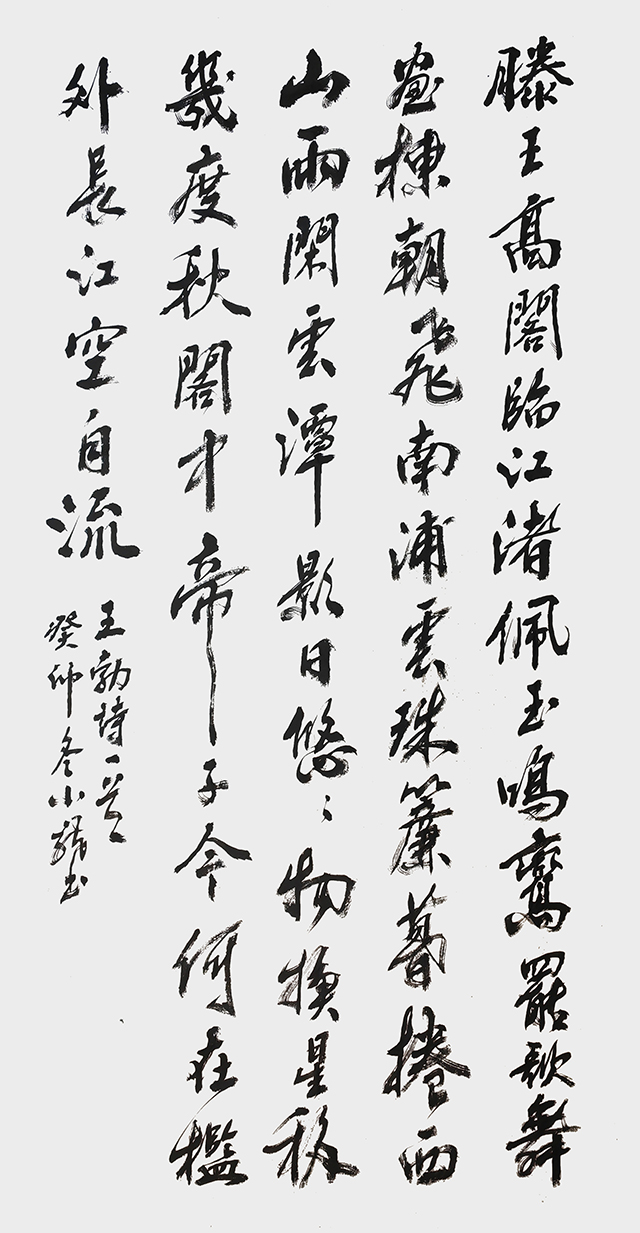 滕王高閣臨江渚佩玉鳴鸞罷歌舞
畫棟朝飛南浦雲珠簾暮捲西
山雨閑雲潭影日悠〻物換星移
幾度秋閣中帝子今何在檻
外長江空自流
王勃詩一首
癸卯冬小书